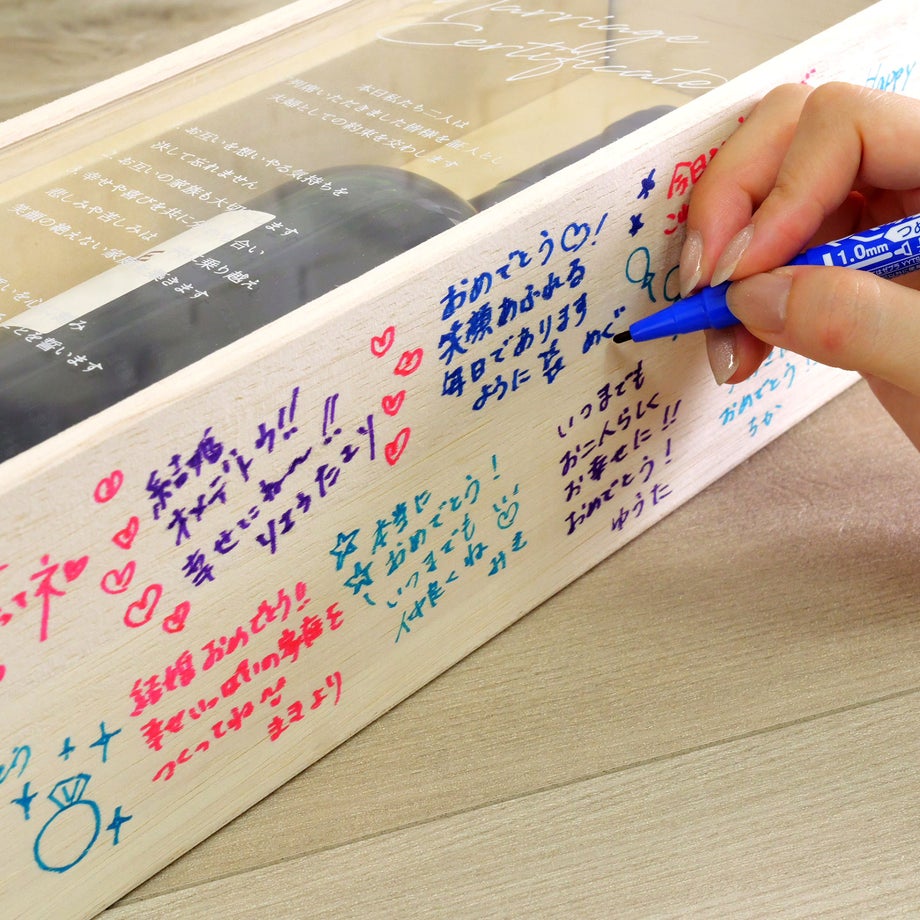 Marriage
Certificate
本日私たち二人は
ご列席いただきました皆様を証人とし
夫婦としての約束を交わします
お互いを想いやる気持ちを
決して忘れません
お互いの家族も大切
ます
幸せや喜びを共に
合い
悲しみや苦しみは
乗り越え
笑顔の絶えない家
きます
誓います
Happy
今日
おめでとう♡!
笑顔あふれる
毎日であります
ように
めぐ
結婚
オメデトウ!!
幸せにね〜!!
リョウたより
本当に
おめでとう!
いつまでも
仲良くね
みき
いつまでも
お二人らしく
お幸せに!!
おめでとう!
ゆうた
おめでとう!!
ちか
結婚おめでとう!!
幸せいっぱいの家庭を
つくってね
まきより
1.0mm